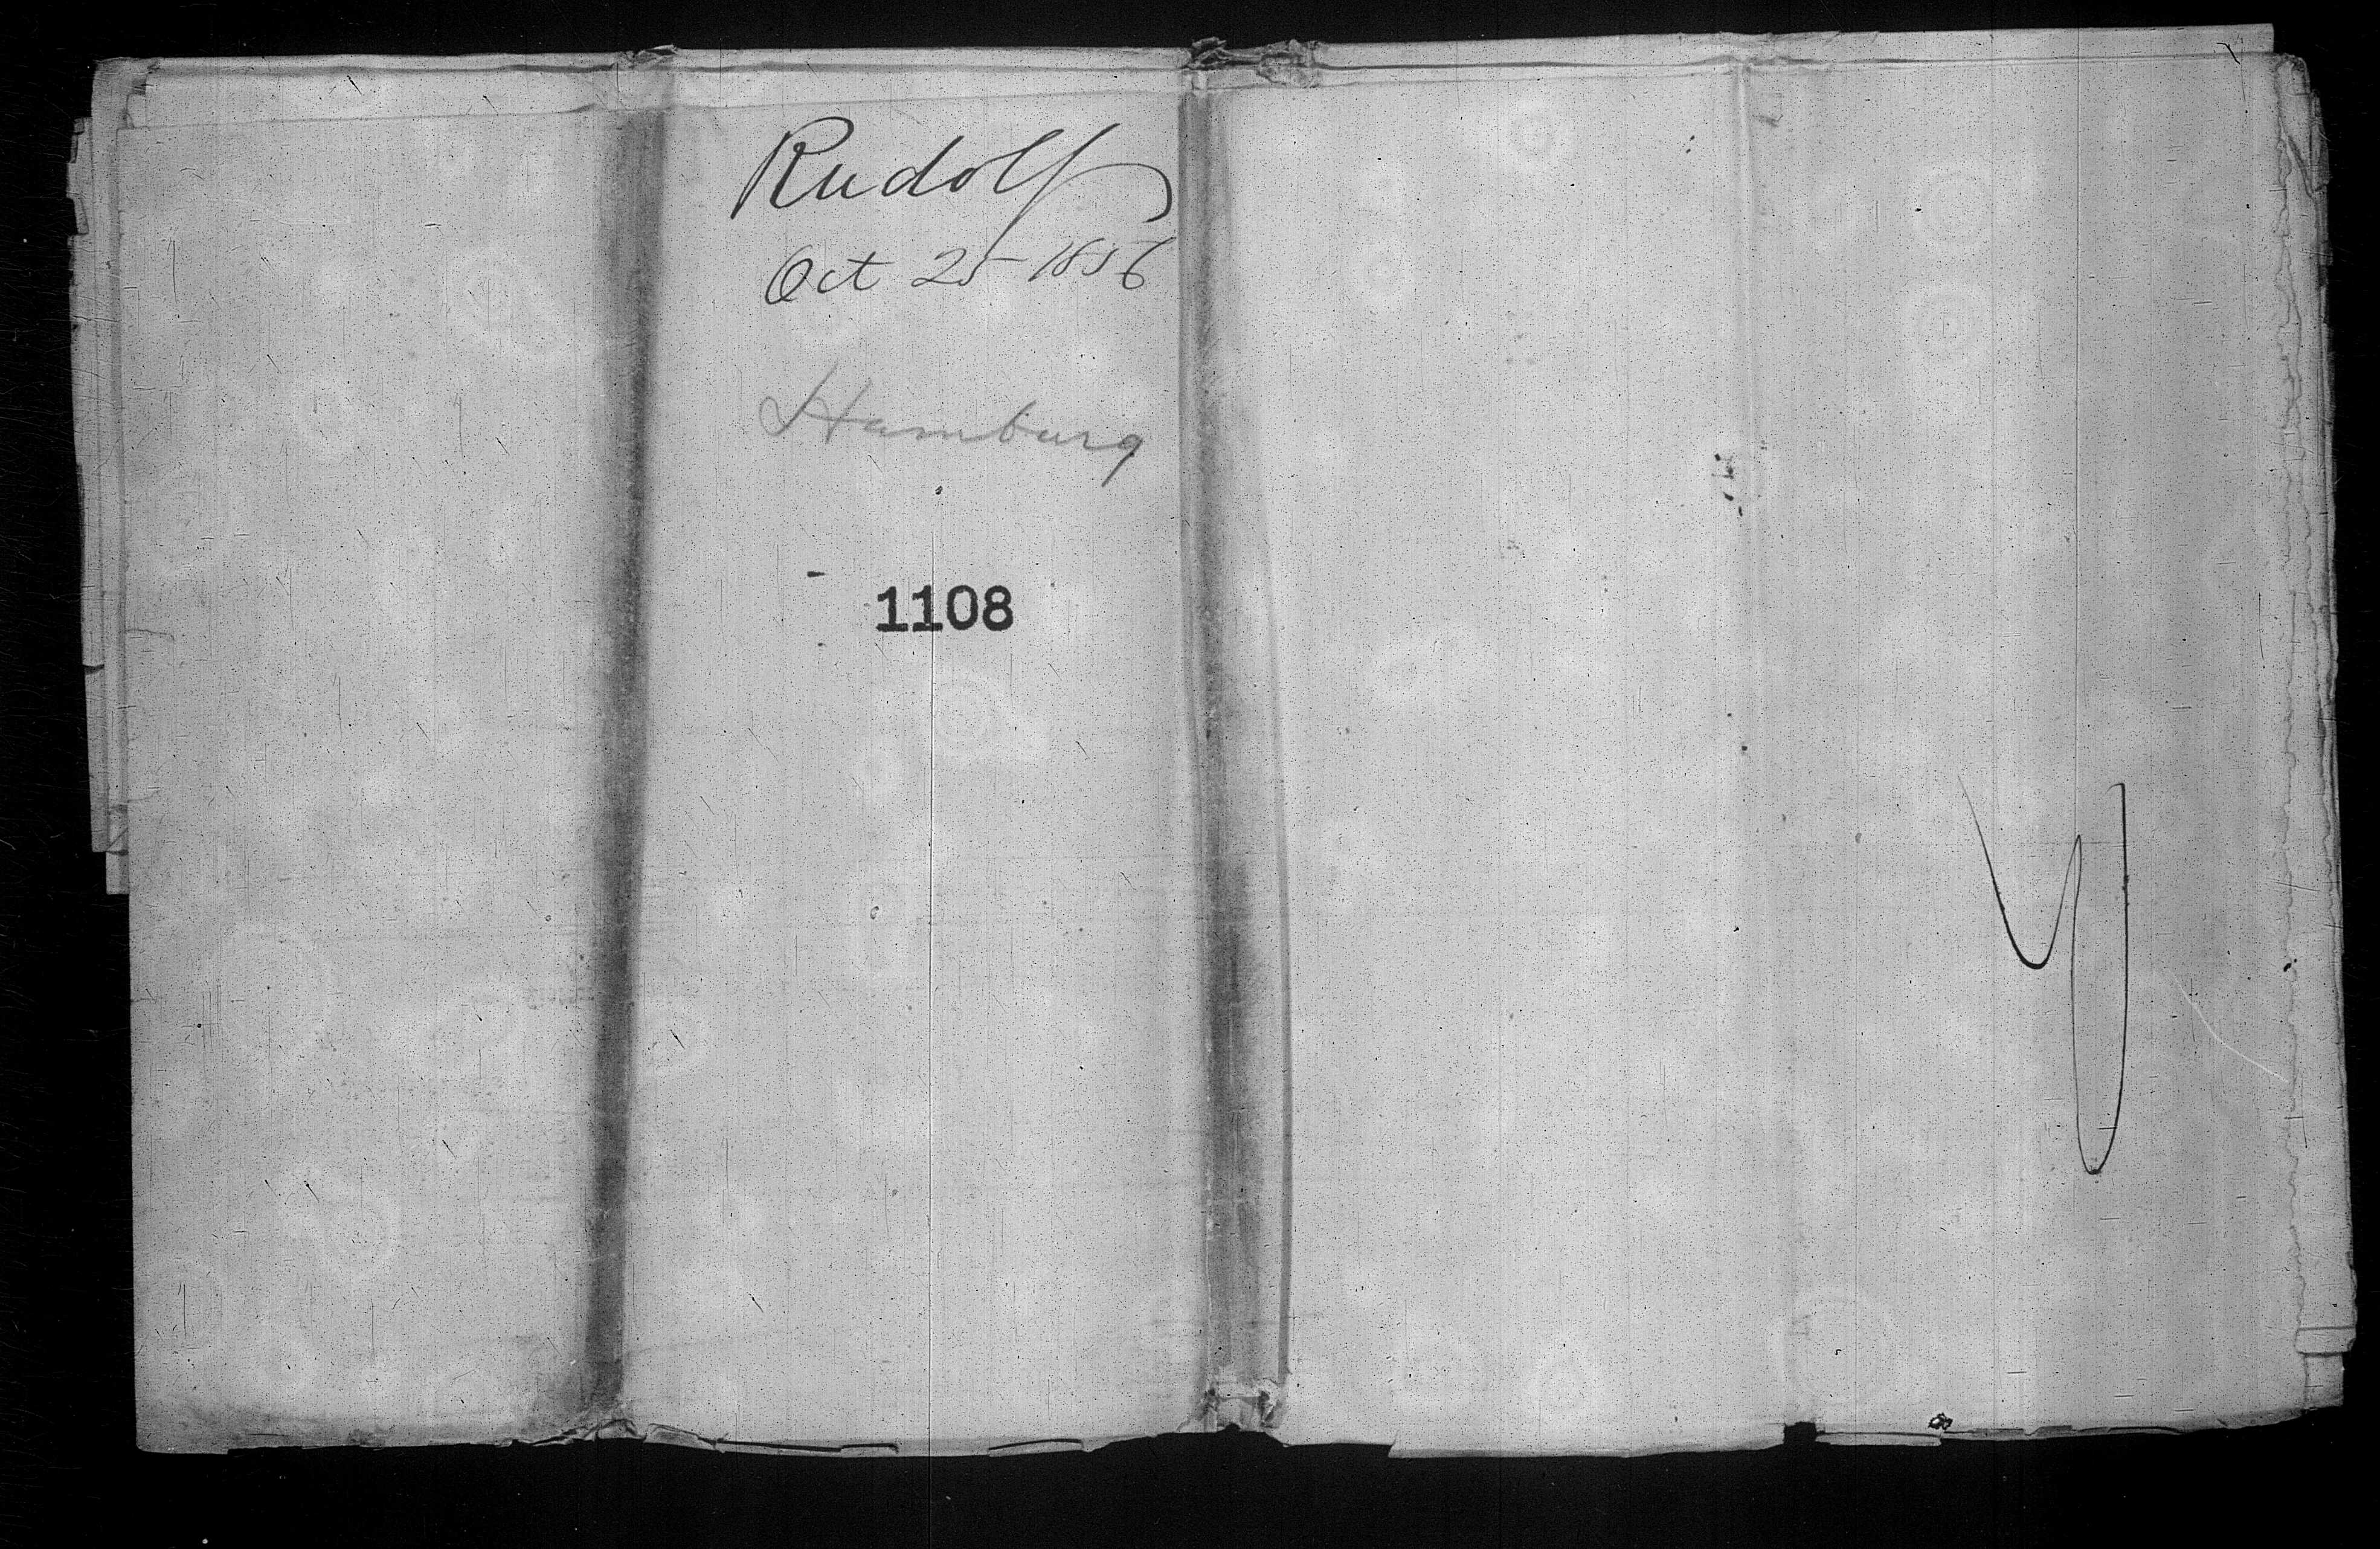 Rudolf
Oct 25 1856
Hamburg
1108